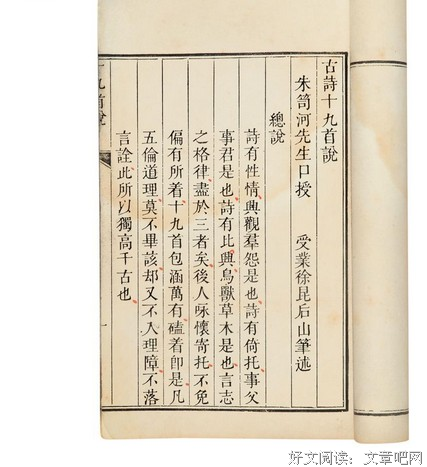 古詩十九首說
朱笥河先生口授　受業徐昆后山筆述
總說
詩有性情興觀羣怨是也詩有倚托事父
事君是也詩有比興鳥獸草木是也言志
之格律盡於三者矣後人咏懷寄托不免
偏有所着十九首包涵萬有磕着即是凡
五倫道理莫不畢該却又不入理障不落
言詮此所以獨高千古也
十九首說
一
好文阅读：文章吧网